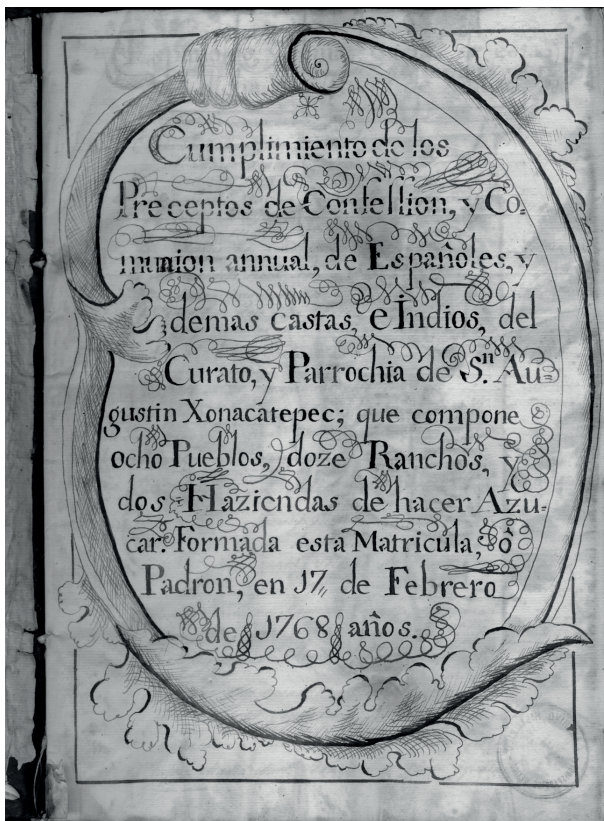 Cumplimiento de los
Preceptos de Confession, y Co-
munion annual, de Españoles, y
demas castas, e Indios, del
Curato, y Parrochia de S.n Au-
gustin Xonacatepec; que compone
ocho Pueblos, doze Ranchos, y
dos Haziendas de hacer Azu-
car. Formada esta Matricula, ô
Padron, en 17 de Febrero
de 1768 años.